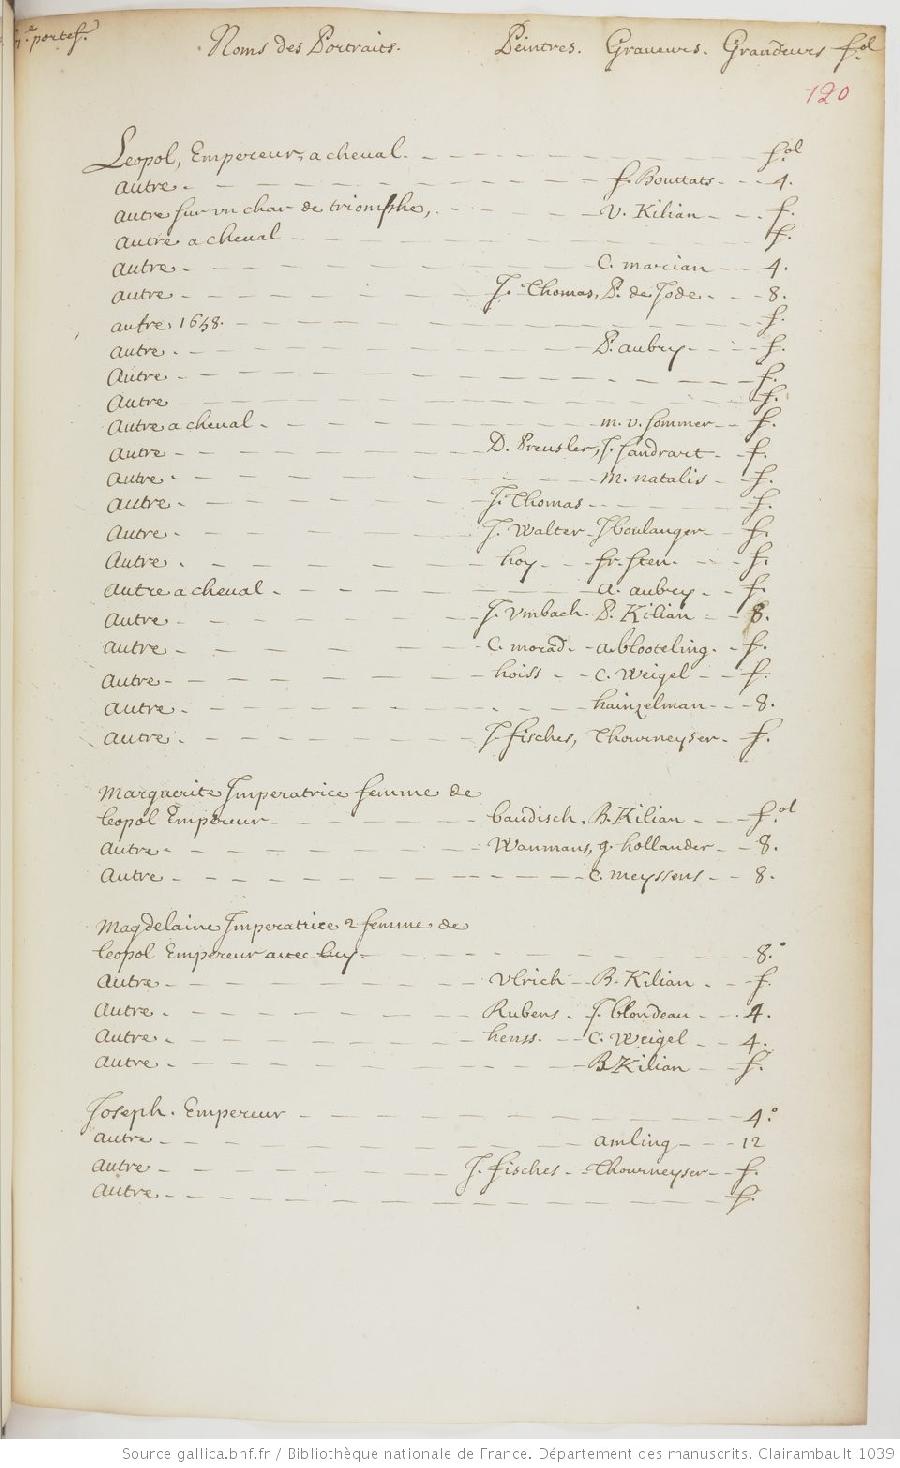 portef.^e Noms des Portraits. Peintres. Graueurs. Grandeurs f.^ol
120
Leopol, Empereur, a cheval. f.^ol
autre. f. Bouttats. 4.
autre sur vn char de triomphe, V. Kilian f.
autre a cheual f.
autre. C. marcian 4.
autre J. Thomas, P. de Jode. 8.
autre, 1658. f.
autre. P. aubry f.
autre f.
autre f.
autre a cheual. m. v. sommer f.
autre D. Preusler, J. sandrart f.
autre. M. natalis f.
autre J. Thomas f.
autre J. Walter J boulanger f.
autre. hoy fr. sten. f.
autre a cheual. a. aubry f.
autre J. Vmbach P. Kilian 8.
autre C. morad a. blooteling. f.
autre hoiss C. Weigel f.
autre. hainzelman 8.
autre J. fisches, Thourneyser f.
Marguerite Imperatrice femme de
leopol Empereur baudisch. B. Kilian f.^ol
autre Wanmans, g. hollander 8.
autre C. meyssens 8.
Magdelaine Imperatrice 2 femme de
leopol Empereur auec luy 8.°
autre Vlrich B. Kilian f.
autre. Rubens. J. blondeau 4.
autre. henss. C. Weigel 4.
autre B. Kilian f.
Joseph. Empereur 4.°
autre amling 12
autre J. fisches Thourneyser f.
autre. f.
Source gallica.bnf.fr / Bibliothèque nationale de France. Département des manuscrits. Clairambault 1039